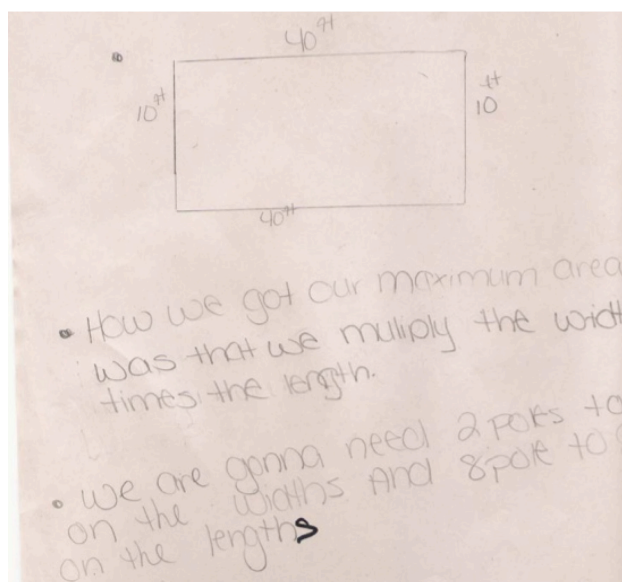 40 ft
10 ft
10 ft
40 ft
• How we got our maximum area
was that we muliply the widt
times the length.
• we are gonna need 2 poles to
on the widths And 8 pole to
on the lengths